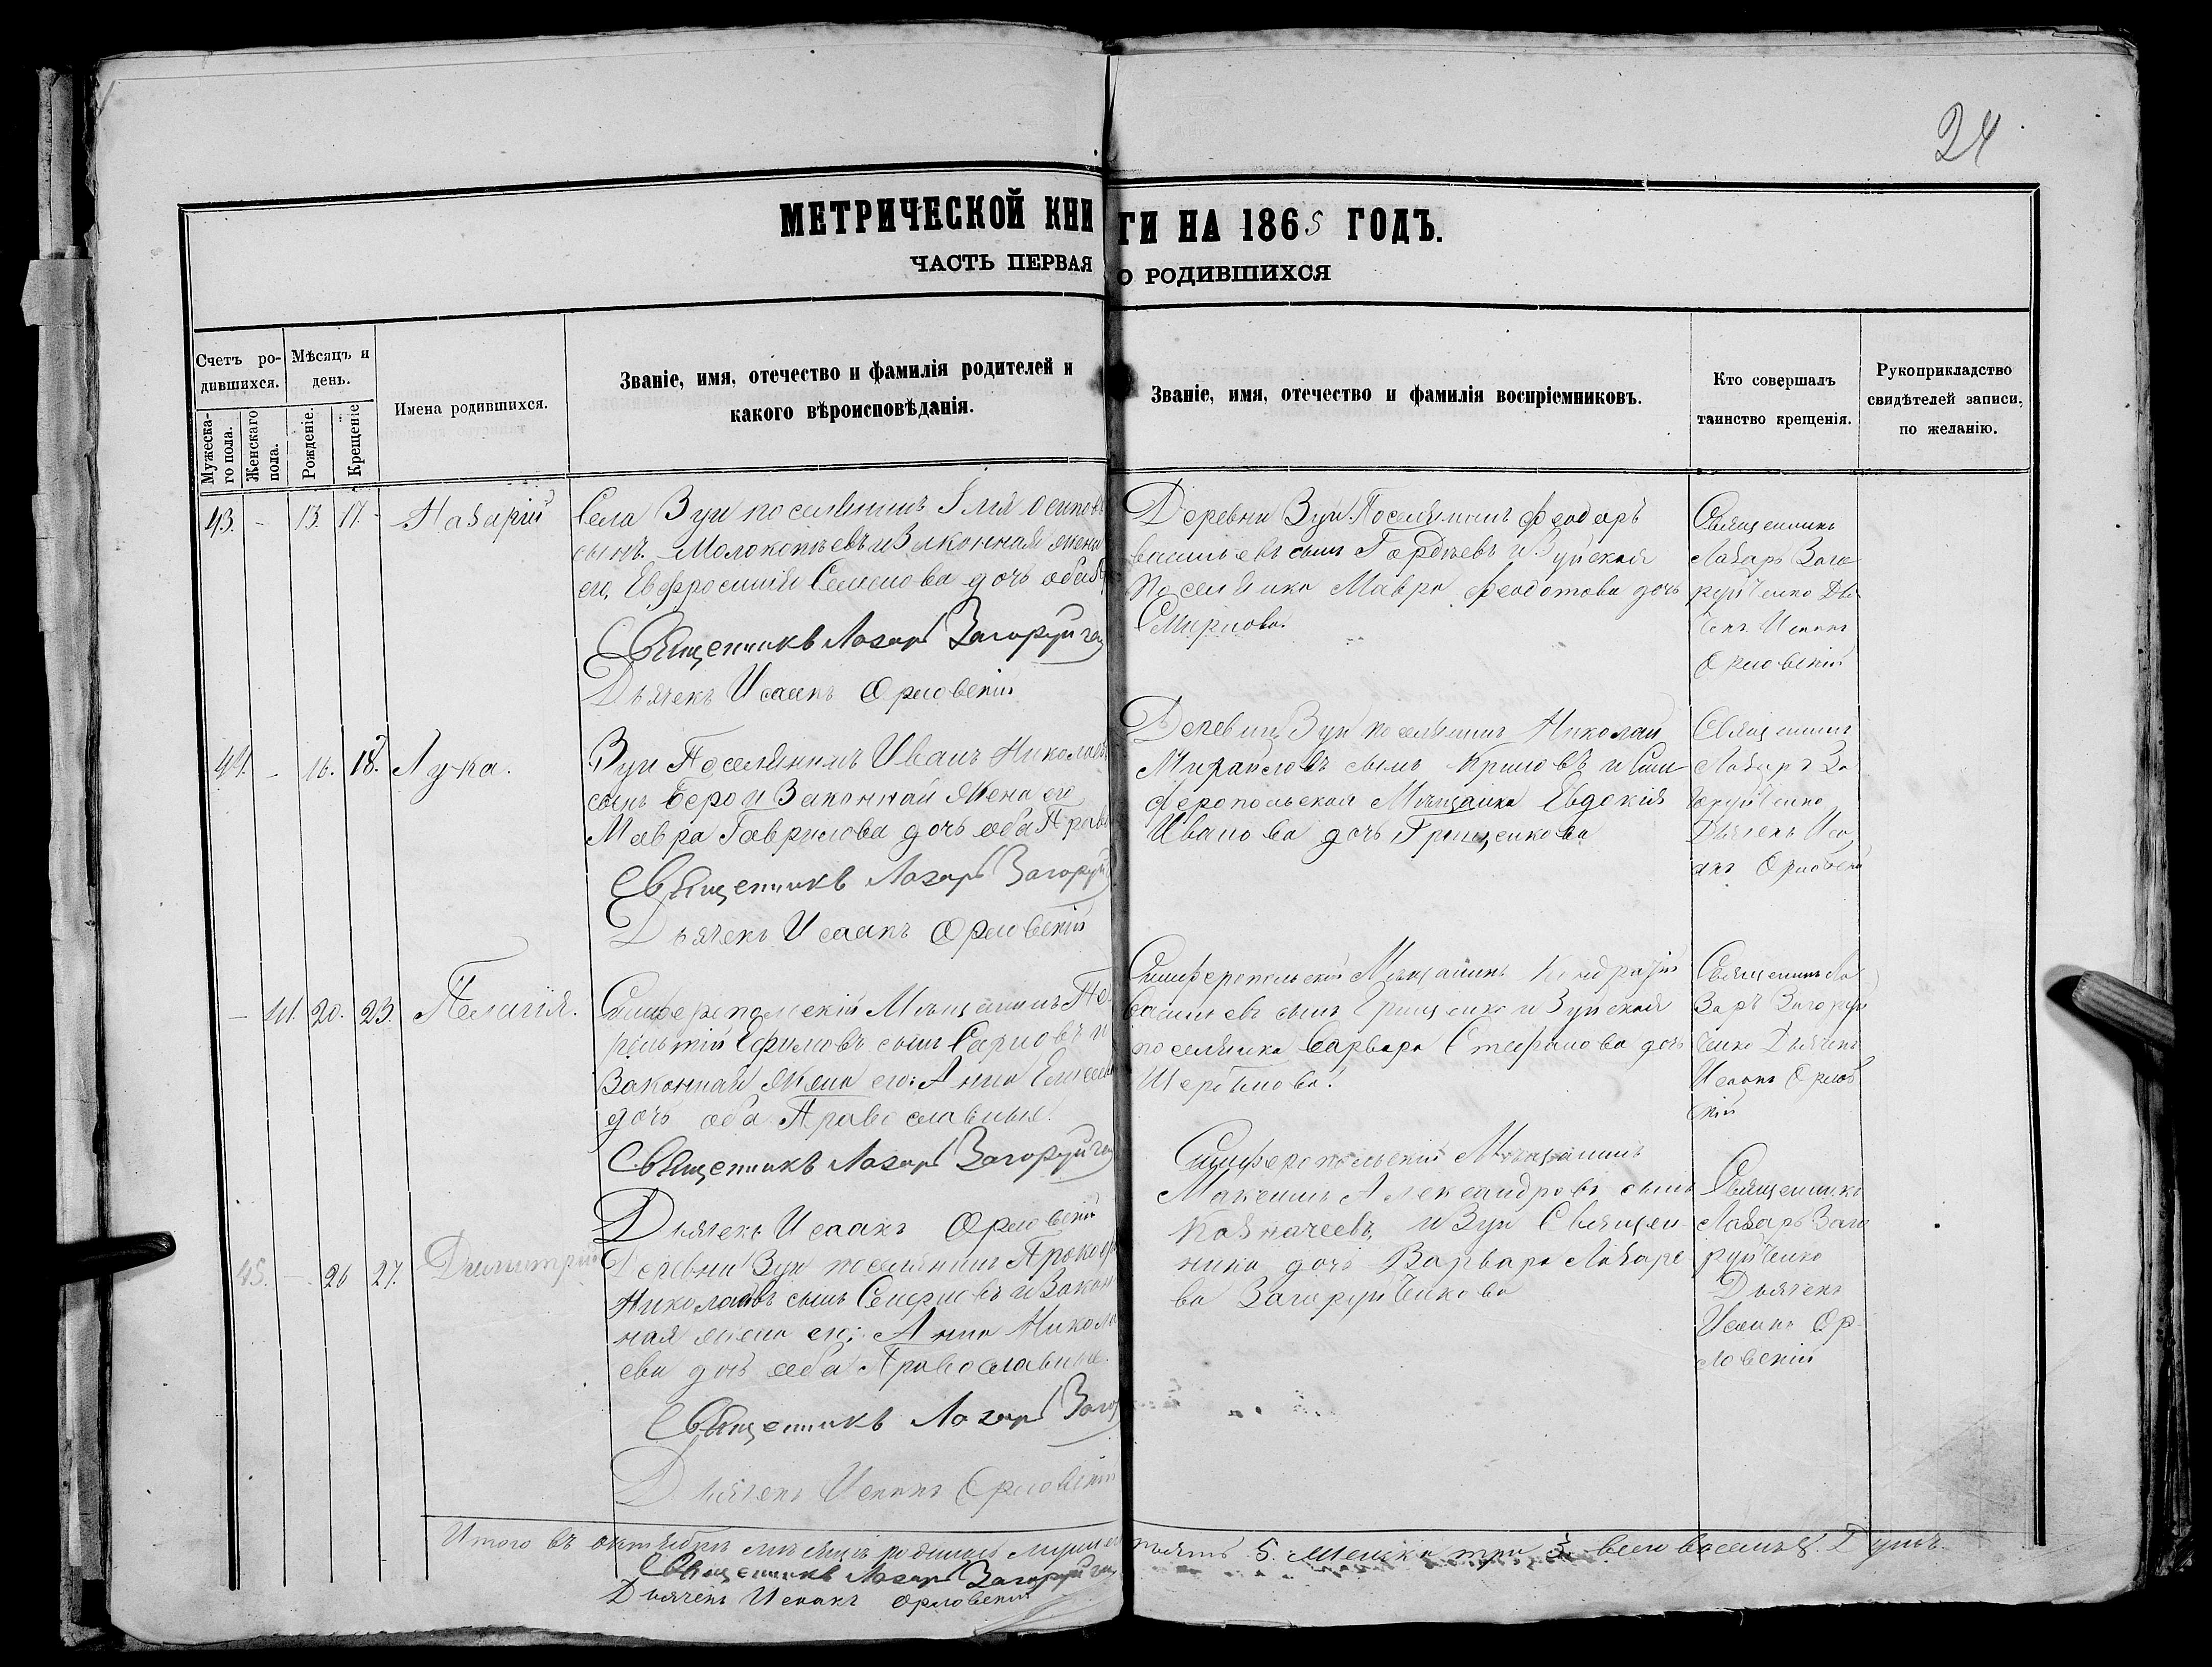 24
МЕТРИЧЕСКОЙ КНИГИ НА 1865 ГОДЪ.
ЧАСТЬ ПЕРВАЯ О РОДИВШИХСЯ
Счетъ ро-
дившихся.
Мужеска-
го пола.
Женскаго
пола.
Мѣсяцъ и
день.
Рожденіе.
Крещеніе
Имена родившихся.
Званіе, имя, отечество и фамилія родителей и
какого вѣроисповѣданія.
Званіе, имя, отечество и фамилія воспріемниковъ.
Кто совершалъ
таинство крещенія.
Рукоприкладство
свидѣтелей записи,
по желанію.
43. - 13. 17. Назарій
Села Зуи поселянинъ Илія Осипов
сынъ Молокопѣевъ и Законная жена
его, Евфросинія Семенова дочь оба
Священникъ Лазарь Загоруйче
Дьячекъ Исаакъ Орловскій
Деревни Зуи Поселянинъ Феодоръ
васильевъ сынъ Гордѣевъ и Зуйская
Поселянка Мавра Феодотова дочь
Смирнова.
Священникъ
Лазарь Заго
руйченко Дья
чекъ Исаакъ
Орловскій
44. - 16. 18. Лука.
Зуи Поселянинъ Иванъ Николаев
сынъ и Законная Жена его
Мавра Гаврилова дочь оба Прав
Священникъ Лазарь Загоруй
Дьячекъ Исаакъ Орловскій
Деревни Зуи поселянинъ Николай
Михайловъ сынъ Криловъ и Сим
феропольская Мѣщанка Евдокія
Ивановa дочь Грищенкова
Священникъ
Лазарь За
горуйченко
Дьячекъ Иса
акъ Орловскі
- 41. 20. 23. Пелагія.
Симферопольскій Мѣщанинъ
Ефимовъ сынъ и
Законная Жена его: Анна Елисеев
дочь оба Православные.
Священникъ Лазарь Загоруйче
Дьячекъ Исаакъ Орловскій
Симферопольскій Мѣщанинъ Кондратій
васильевъ сынъ Грищенко и Зуйская
поселянка Варвара Стефанова дочь
Священникъ Ла
зарь Загоруй
ченко Дьячекъ
Исаакъ Орлов
скій
45. - 26 27. Димитрій
Деревни Зуи поселянинъ Прокоф
Николаевъ сынъ и Закон
ная жена его: Анна Никола
ева дочь оба Православные.
Священникъ Лазарь Заго
Дьячекъ Исаакъ Орловскій
Симферопольскій Мѣщанинъ
Максимъ Александровъ сынъ
Казначеевъ, и Зуи Священ
ника дочь Варвара Лазаре
ва Загоруйченкова
Священникъ
Лазарь Заго
руйченко
Дьячекъ
Исаакъ Ор-
ловскій
Итого въ октябрѣ мѣсяцѣ родилось мужес пять 5. женска три 3 всего восемь 8. Душъ.
Священникъ Лазарь Загоруйче
Дьячекъ Исаакъ Орловскій